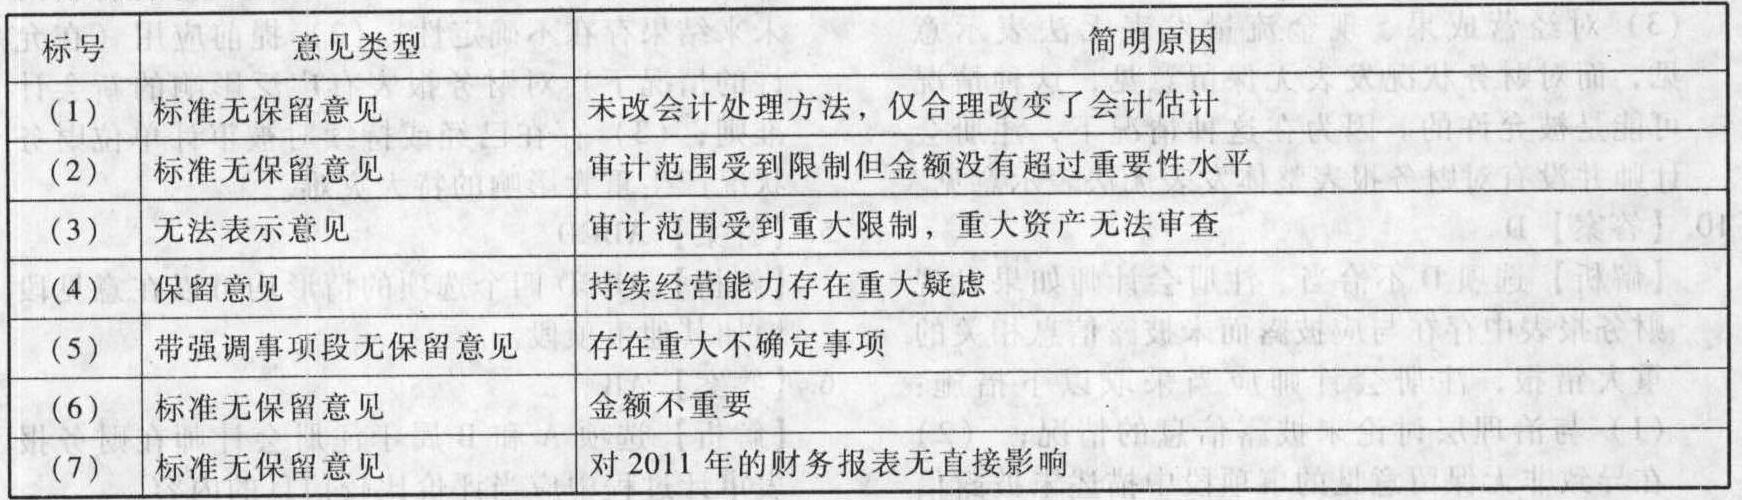 标号 意见类型 简明原因
(1) 标准无保留意见 未改会计处理方法，仅合理改变了会计估计
(2) 标准无保留意见 审计范围受到限制但金额没有超过重要性水平
(3) 无法表示意见 审计范围受到重大限制，重大资产无法审查
(4) 保留意见 持续经营能力存在重大疑虑
(5) 带强调事项段无保留意见 存在重大不确定事项
(6) 标准无保留意见 金额不重要
(7) 标准无保留意见 对 2011 年的财务报表无直接影响